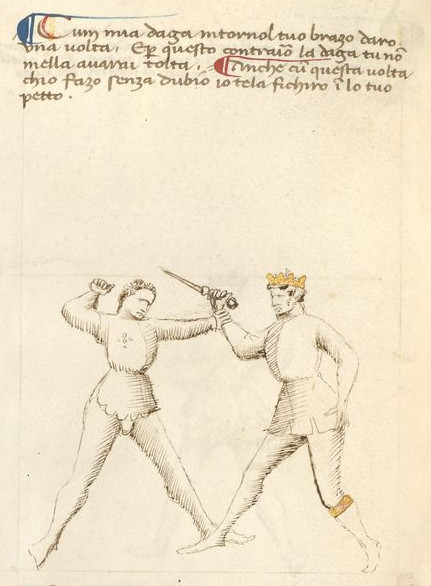 Cum mia daga intornol tuo brazo daro.
una volta. E per questo contraiō la daga tu nō
mella avarai tolta. Anche cū questa volta
chio fazo senza dubio io tela fichiro ī lo tuo
petto.